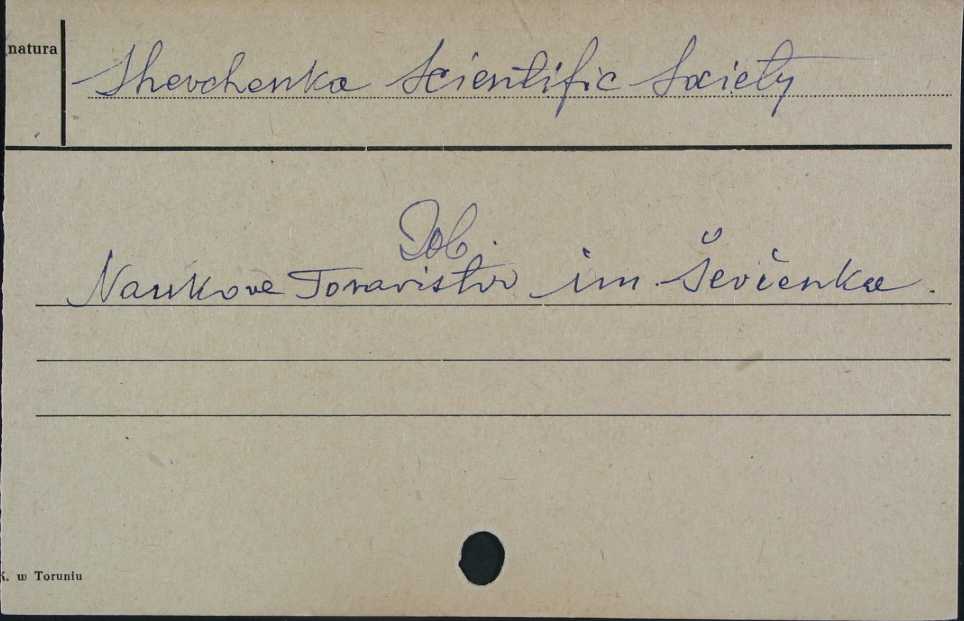 natura
Shevchenka Scientific Society
Zob.
Naukove Tovaristvo im. Ševčenka.
K. w Toruniu